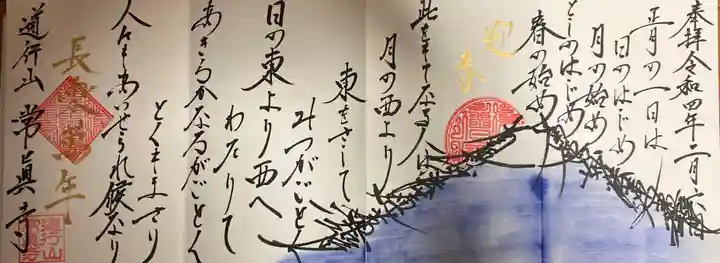 奉拝令和四年
正月の一日は
日のはじめ
月の始め
としのはじめ
春の始め
迎春
此をもてなす人は
月の西より
東をさして
みつがごとく
日の東より西へ
わたりて
あきらかなるがごとく
とくもまさり
人にもあいせられ候なり
長壽萬年
道行山 常眞寺